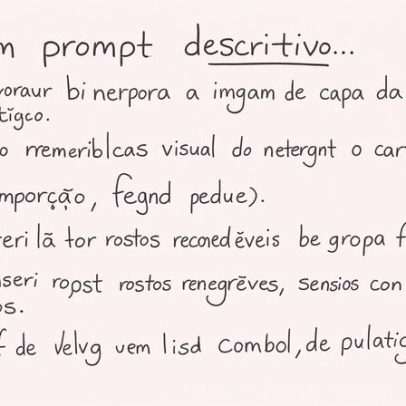 m prompt descritivo...
voraur bi nerpora a imgam de capa da
tĭgco.
o rremeriblcas visual do netergnt o car
mporção, fegnd pedue).
teri lã tor rostos reconedĕveis be gropa f
nseri ropst rostos renegrĕves, sensios con
os.
f de velvg uem lisd combol, de pulatic